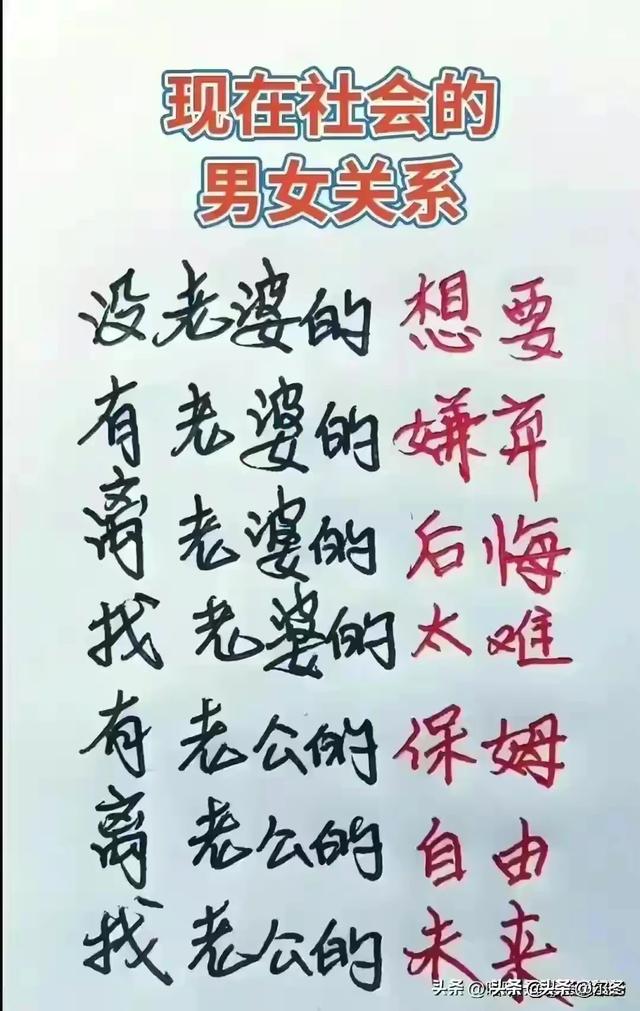 现在社会的
男女关系
没老婆的 想要
有老婆的 嫌弃
离老婆的 后悔
找老婆的 太难
有老公的 保姆
离老公的 自由
找老公的 未来
头条 @头条@头条